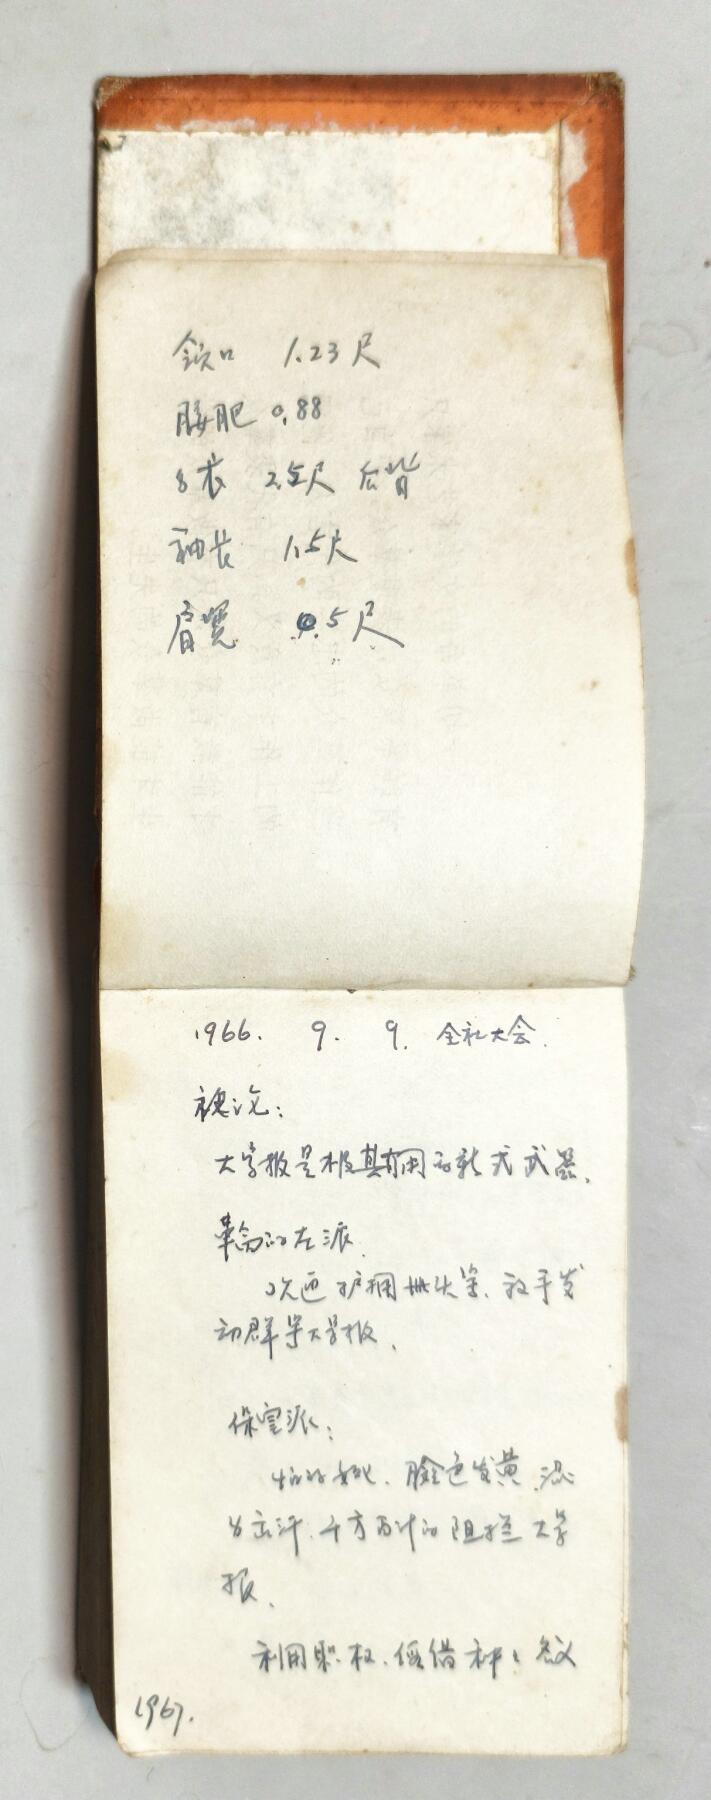 领口 1.23尺
腰肥 0.88
身长 2.5尺 后背
袖长 1.5尺
肩宽 0.5尺
1966. 9. 9. 全社大会.
穆沅:
大字报是极其有用的新式武器.
革命的左派.
欢迎 拥护 带头写. 放手发
动群众大字报.
保皇派:
怕的要死. 脸色发黄. 浑
身出汗. 千方百计的阻拦大字
报.
利用职权. 假借种种名义
1967.